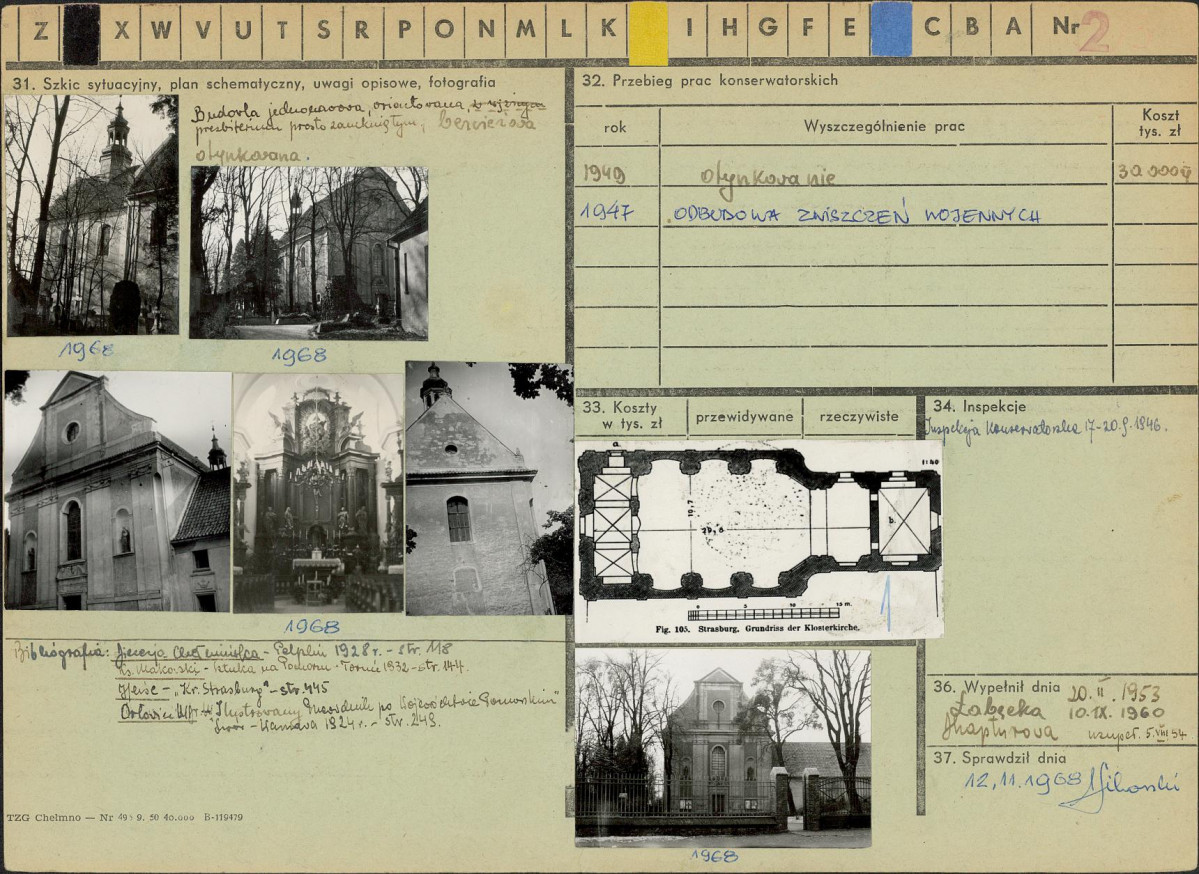 Z X W V U T S R P O N M L K I H G F E C B A Nr 2
31. Szkic sytuacyjny, plan schematyczny, uwagi opisowe, fotografia
Budowla jednonawowa, orientowana,
prezbiterium prosto zamkniętym, bezwieżowa
otynkowana.
1968
1968
1968
Bibliografia: Diecezja Chełmińska - Pelplin 1928 r. - str. 118
Ks. Makowski - Sztuka na Pomorzu - Toruń 1932 - str. 144.
Heise - "Kr. Strasburg" - str. 445
Orłowicz M. Ilustrowany Przewodnik po Województwie Pomorskim"
Lwów - Warszawa 1924 r. - str. 243.
TZG Chełmno — Nr 49 9. 50 40.000 B-119479
32. Przebieg prac konserwatorskich
rok Wyszczególnienie prac Koszt
tys. zł
1949 otynkowanie
1947 ODBUDOWA ZNISZCZEŃ WOJENNYCH
33. Koszty
w tys. zł
przewidywane rzeczywiste
a
1:40
10,7
29,8
b.
0 5 10 15 m.
Fig. 105. Strasburg. Grundriss der Klosterkirche.
1
1968
34. Inspekcje
Inspekcja Konserwatorska 17-20.9.1946.
36. Wypełnił dnia
20.II.1953
10.IX.1960
uzupeł. 5.VIII.54
37. Sprawdził dnia
12,11.1968